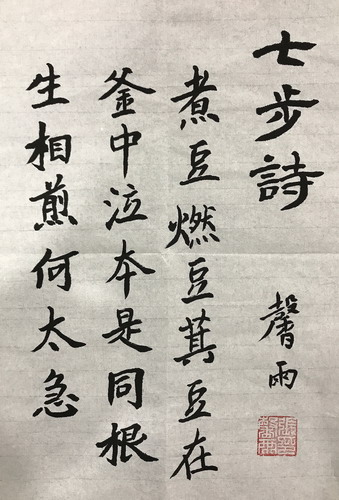 七步詩
馨雨
煮豆燃豆萁豆在
釜中泣本是同根
生相煎何太急